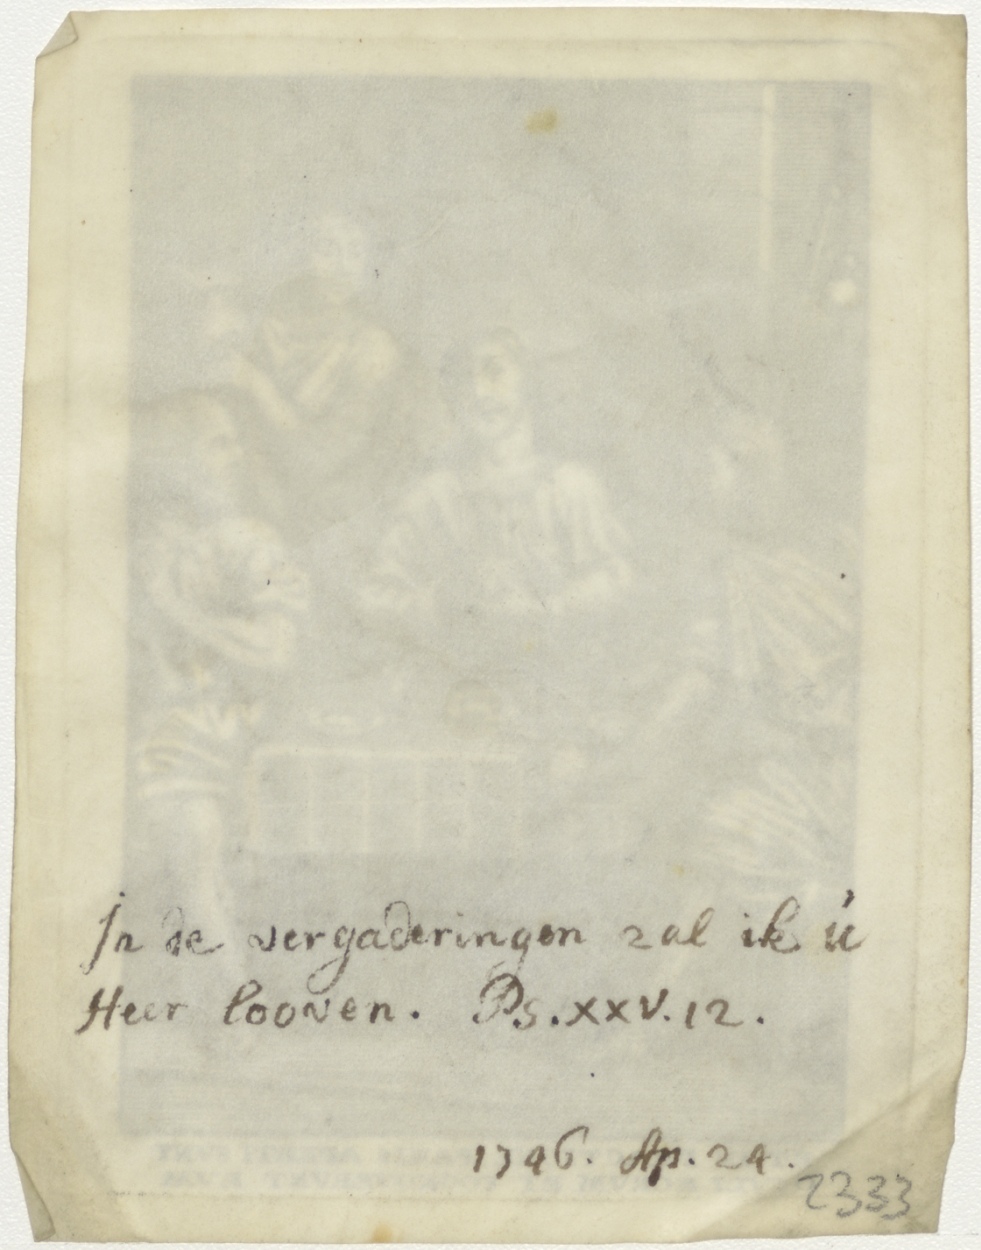 In de vergaderingen zal ik ú
Heer looven. Ps. XXV. 12.
1746. Ap. 24.
2333